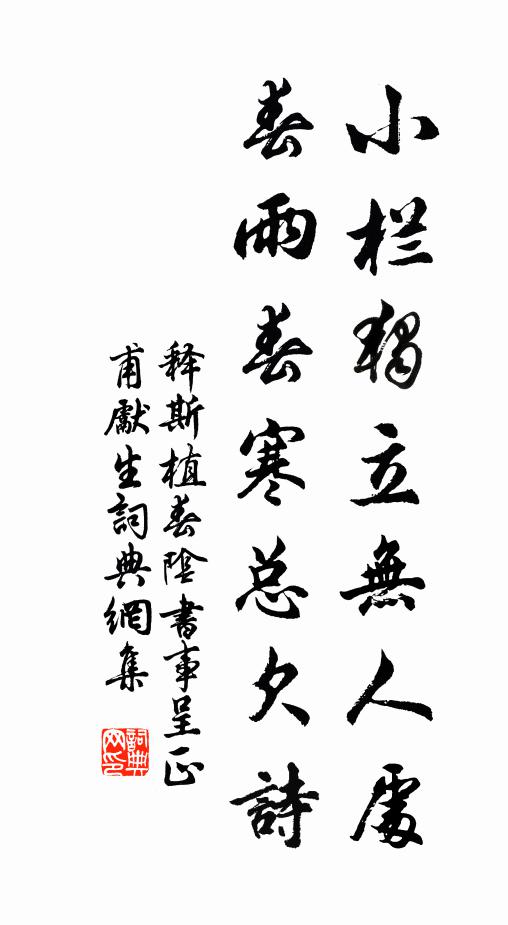 小栏獨立無人處
春雨春寒总欠詩
释斯植春陰書事呈正
甫獻生詞典網集
詞典网印